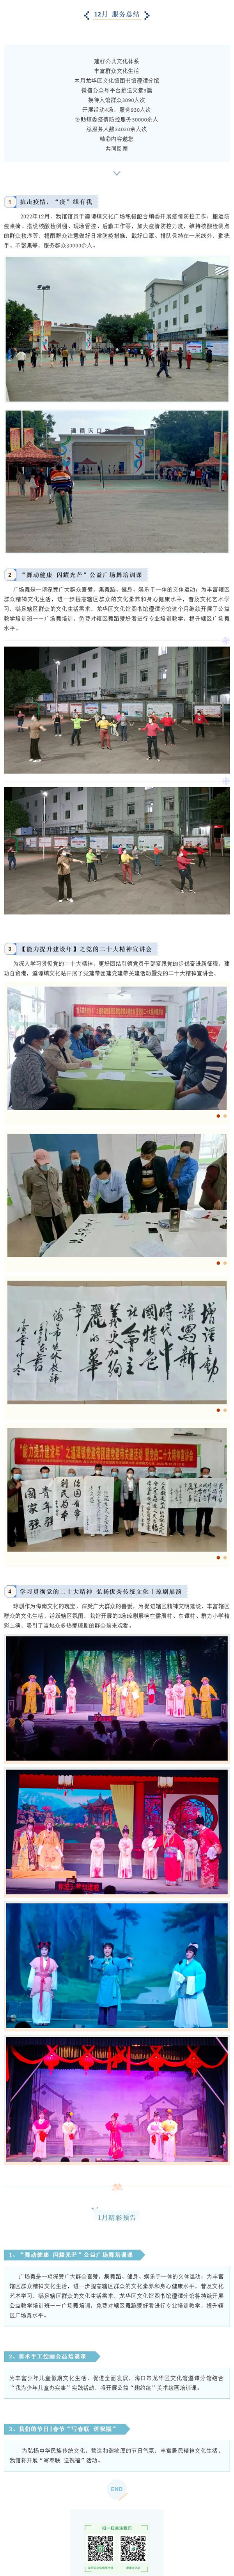 12月 服务总结
建好公共文化体系
丰富群众文化生活
本月龙华区文化馆图书馆遵谭分馆
微信公众号平台推送文章3篇
接待入馆群众3090人次
开展活动4场，服务930人次
协助镇委疫情防控服务30000余人
总服务人群34020余人次
精彩内容邀您
共同回顾
1 抗击疫情，“疫”线有我
2022年12月，我馆馆员于遵谭镇文化广场积极配合镇委开展疫情防控工作，搬运防
疫桌椅、搭设核酸检测棚、现场管控、后勤工作等，加大疫情防控力度，维持核酸检测点
的群众秩序等，提醒群众注意做好日常防疫措施，戴好口罩、排队保持在一米线外，勤洗
手、不聚集等，服务群众30000余人。
2 “舞动健康 闪耀光芒”公益广场舞培训课
广场舞是一项深受广大群众喜爱，集舞蹈、健身、娱乐于一体的文体运动，为丰富辖区
群众精神文化生活，进一步提高辖区群众的文化素养和身心健康水平，普及文化艺术学
习，满足辖区群众的文化生活需求，龙华区文化馆图书馆遵谭分馆这个月继续开展了公益
教学培训班——广场舞培训，免费对辖区舞蹈爱好者进行专业培训教学，提升辖区广场舞
水平。
3 【能力提升建设年】之党的二十大精神宣讲会
为深入学习贯彻党的二十大精神，更好团结引领党员干部紧跟党的步伐奋进新征程，建
功自贸港，遵谭镇文化站开展了党建带团建党建带关建活动暨党的二十大精神宣讲会。
4 学习贯彻党的二十大精神 弘扬优秀传统文化丨琼剧展演
琼剧作为海南文化的瑰宝，深受广大群众的喜爱，为促进辖区精神文明建设，丰富辖区
群众的文化生活，活跃辖区氛围，我馆开展的3场琼剧展演在儒南村、东谭村、群力小学精
彩上演，吸引了当地众多热爱琼剧的群众前来观看。
1月精彩预告
1、“舞动健康 闪耀光芒”公益广场舞培训课
广场舞是一项深受广大群众喜爱，集舞蹈、健身、娱乐于一体的文体运动，为丰富
辖区群众精神文化生活，进一步提高辖区群众的文化素养和身心健康水平，普及文化
艺术学习，满足辖区群众的文化生活需求，龙华区文化馆图书馆遵谭分馆将持续开展
公益教学培训班——广场舞培训，免费对辖区舞蹈爱好者进行专业培训教学，提升辖
区广场舞水平。
2、美术手工绘画公益培训课
为丰富少年儿童假期文化生活，促进全面发展，海口市龙华区文化馆遵谭分馆结合
“我为少年儿童办实事”实践活动，将开展公益“趣约绘”美术绘画培训课。
3、我们的节日|春节“写春联 送祝福”
为弘扬中华民族传统文化，营造和谐浓厚的节日气氛，丰富居民精神文化生活，
我馆将开展“写春联 送祝福”活动。
END
扫一扫关注我们